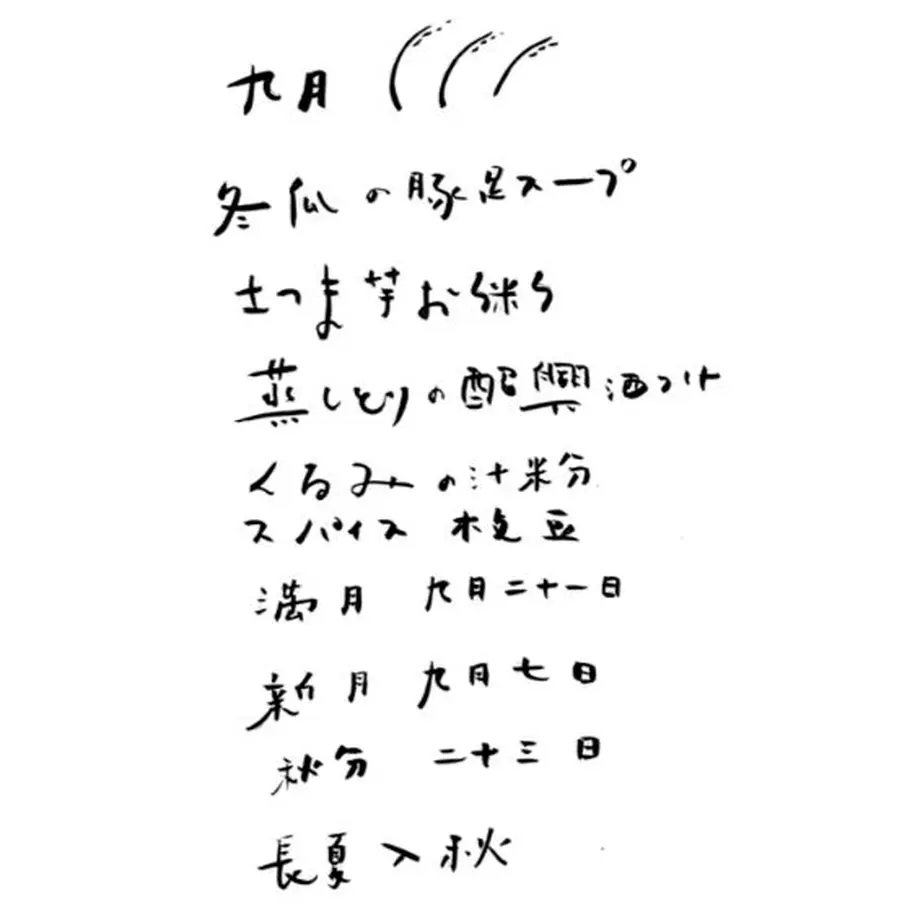 九月
冬瓜の豚足スープ
さつま芋お粥
蒸しどりの酒づけ
くるみの汁粉
スパイス 枝豆
満月 九月二十一日
新月 九月七日
秋分 二十三日
長夏入秋